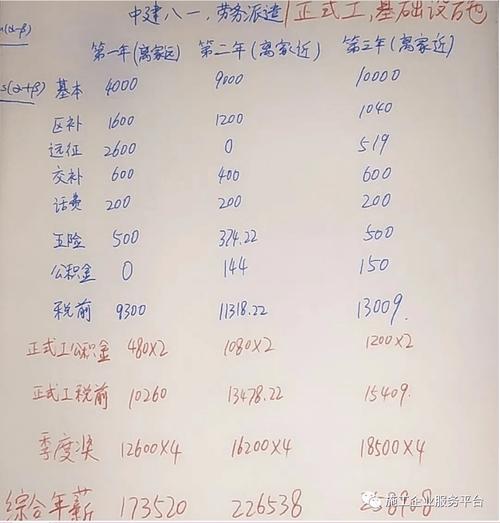 中建八一,劳务派遣/正式工,基础设施
(α-β)
第一年(离家远) 第二年(离家近) 第三年(离家近)
s(α+β)
基本 4000 9000 10000
区补 1600 1200 1040
远征 2600 0 519
交补 600 400 600
话费 200 200 200
五险 500 374.22 500
公积金 0 144 150
税前 9300 11318.22 13009.
正式工公积金 480×2 1080×2 1200×2
正式工税前 10260 13478.22 15409.
季度奖 12600×4 16200×4 18500×4
综合年薪 173520 226538
施工企业服务平台